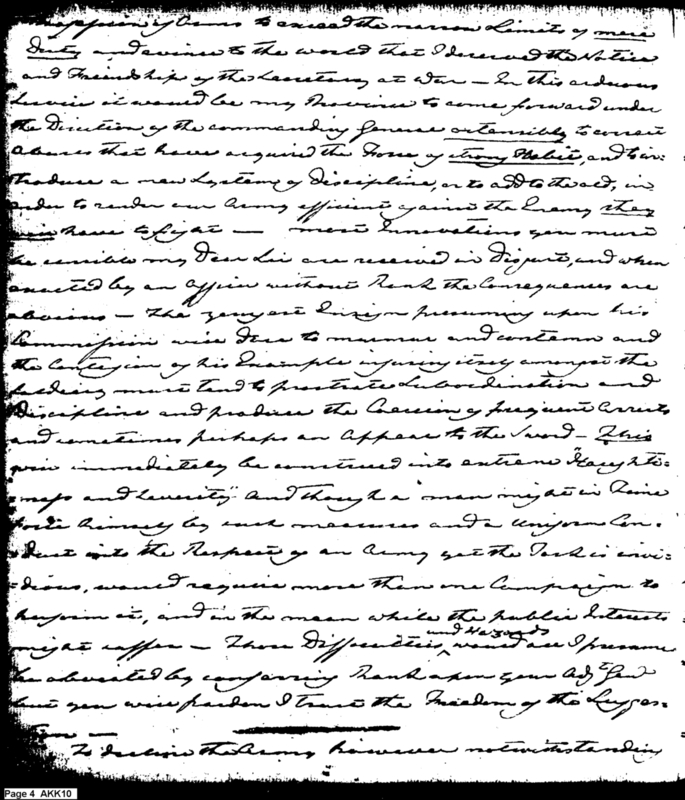 of Arms to exceed the narrow Limits of mere
Duty and evince to the world that I deserved the Notice
and Friendship of the Secretary at War — In this arduous
Service it would be my Province to come forward under
the Direction of the commanding General ostensibly to correct
Abuses that have acquired the Force of strong Habit, and to in:
troduce a new System of Discipline, or to add to the old, in
order to render our Army efficient against the Enemy they
have to Fight — most Innovations you must
be sensible my Dear Sir are received in Disgust, and when
enacted by an officer without Rank the Consequences are
obvious — The youngest Ensign presuming upon his
Commission will dare to murmur and contemn and
the Contagion of his Example infusing itself amongst the
Soldiery must tend to prostrate Subordination and
Discipline and produce the Coercion of frequent Arrests
and sometimes perhaps an Appeal to the Sword — This
will immediately be construed into extreme "Haughti=
ness and Severity" And though a man might in Time
force himself by such measures and a Uniform Con=
=duct into the Respect of an Army yet the Task is invi=
=dious, would require more than one Campaign to
perform it, and in the mean while the public Interests
might suffer — Those Difficulties and Hazards would all I presume
be obviated by conferring Rank upon your Adj.t Gen.l
but you will pardon I trust the Freedom of the Sugges=
tion —
To decline the Army however notwithstanding
Page 4 AKK10